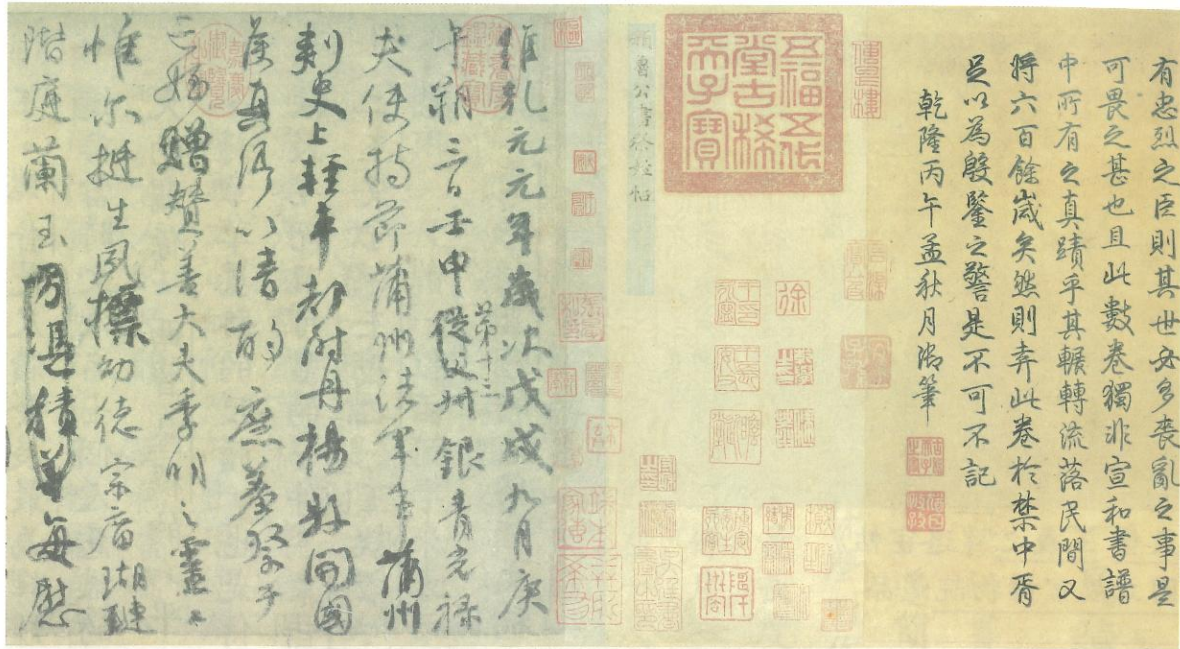 有忠烈之臣則其世必多喪亂之事是
可畏之甚也且此數卷獨非宣和書譜
中所有之真蹟乎其輾轉流落民間又
將六百餘歲矣然則弆此卷於禁中胥
足以為殷鑒之警是不可不記
乾隆丙午孟秋月御筆
五福五代
堂古稀
天子寶
顏魯公書祭姪帖
維乾元元年歲次戊戌九月庚
午朔三日壬申第十三從父叔銀青光祿
夫使持節蒲州諸軍事蒲州
刺史上輕車都尉丹楊縣開國
侯真卿以清酌庶羞祭于
亡姪贈贊善大夫季明之靈曰
惟尔挺生夙標幼德宗廟瑚璉
階庭蘭玉方憑積善每慰